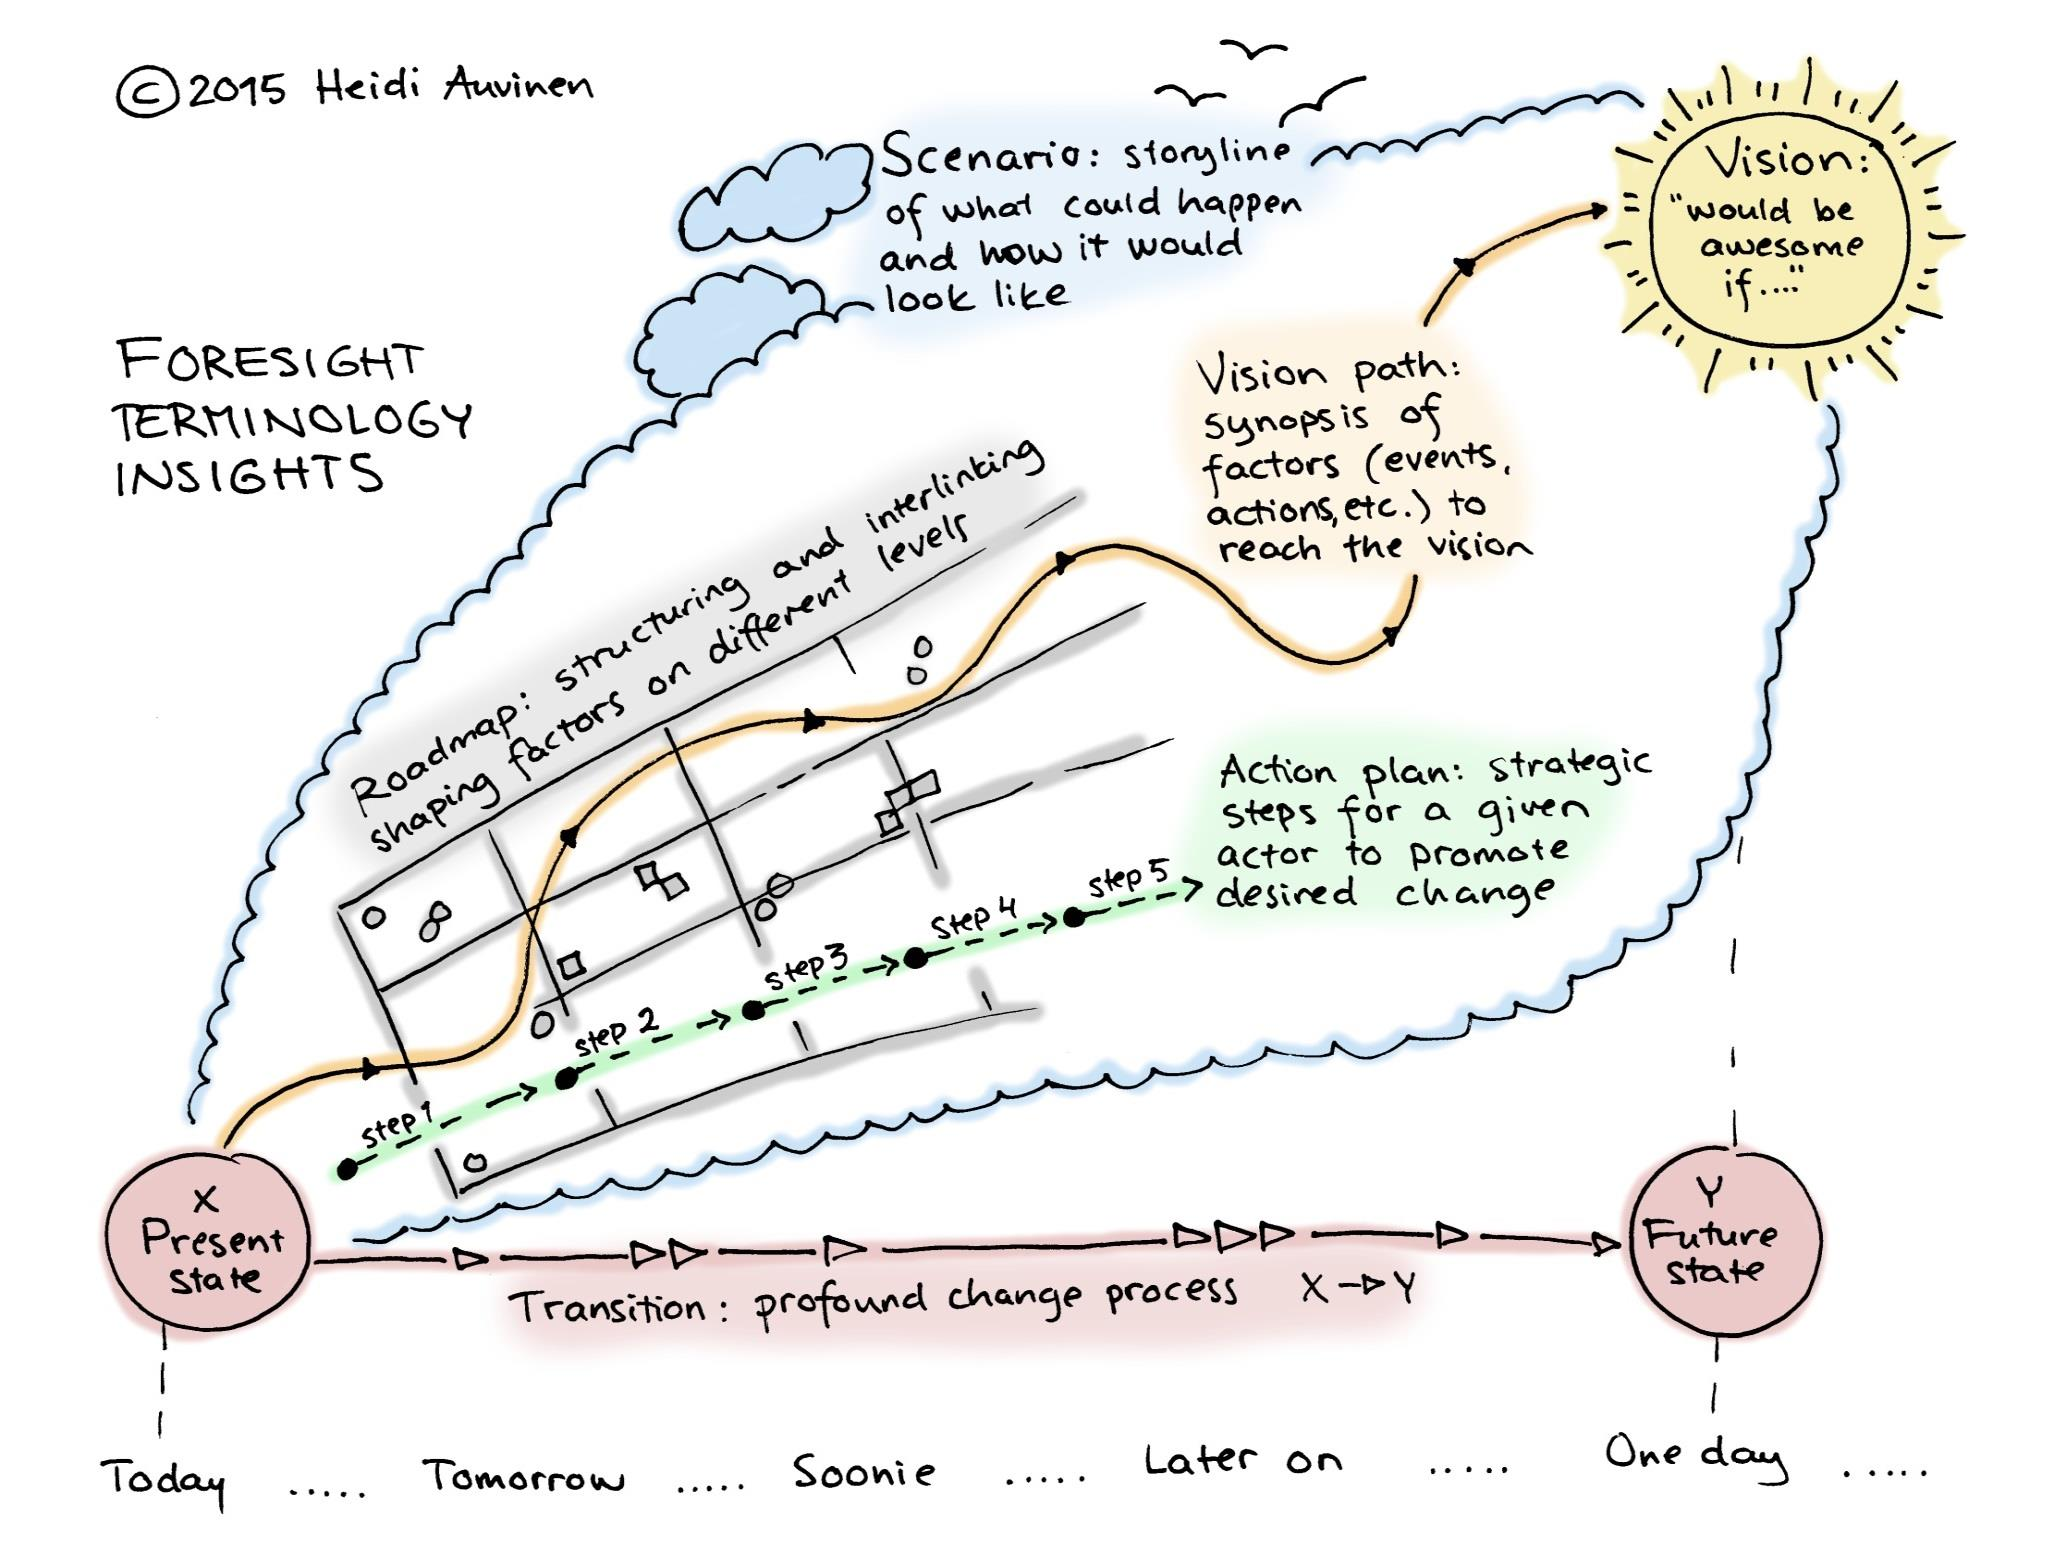 © 2015 Heidi Auvinen
FORESIGHT
TERMINOLOGY
INSIGHTS
Scenario: storyline
of what could happen
and how it would
look like
Vision:
"would be
awesome
if...."
Vision path:
synopsis of
factors (events,
actions, etc.) to
reach the vision
Roadmap: structuring and interlinking
shaping factors on different levels
Action plan: strategic
steps for a given
actor to promote
desired change
step 1
step 2
step 3
step 4
step 5
X
Present
state
Y
Future
state
Transition: profound change process X → Y
Today ..... Tomorrow ..... Soonie ..... Later on ..... One day .....